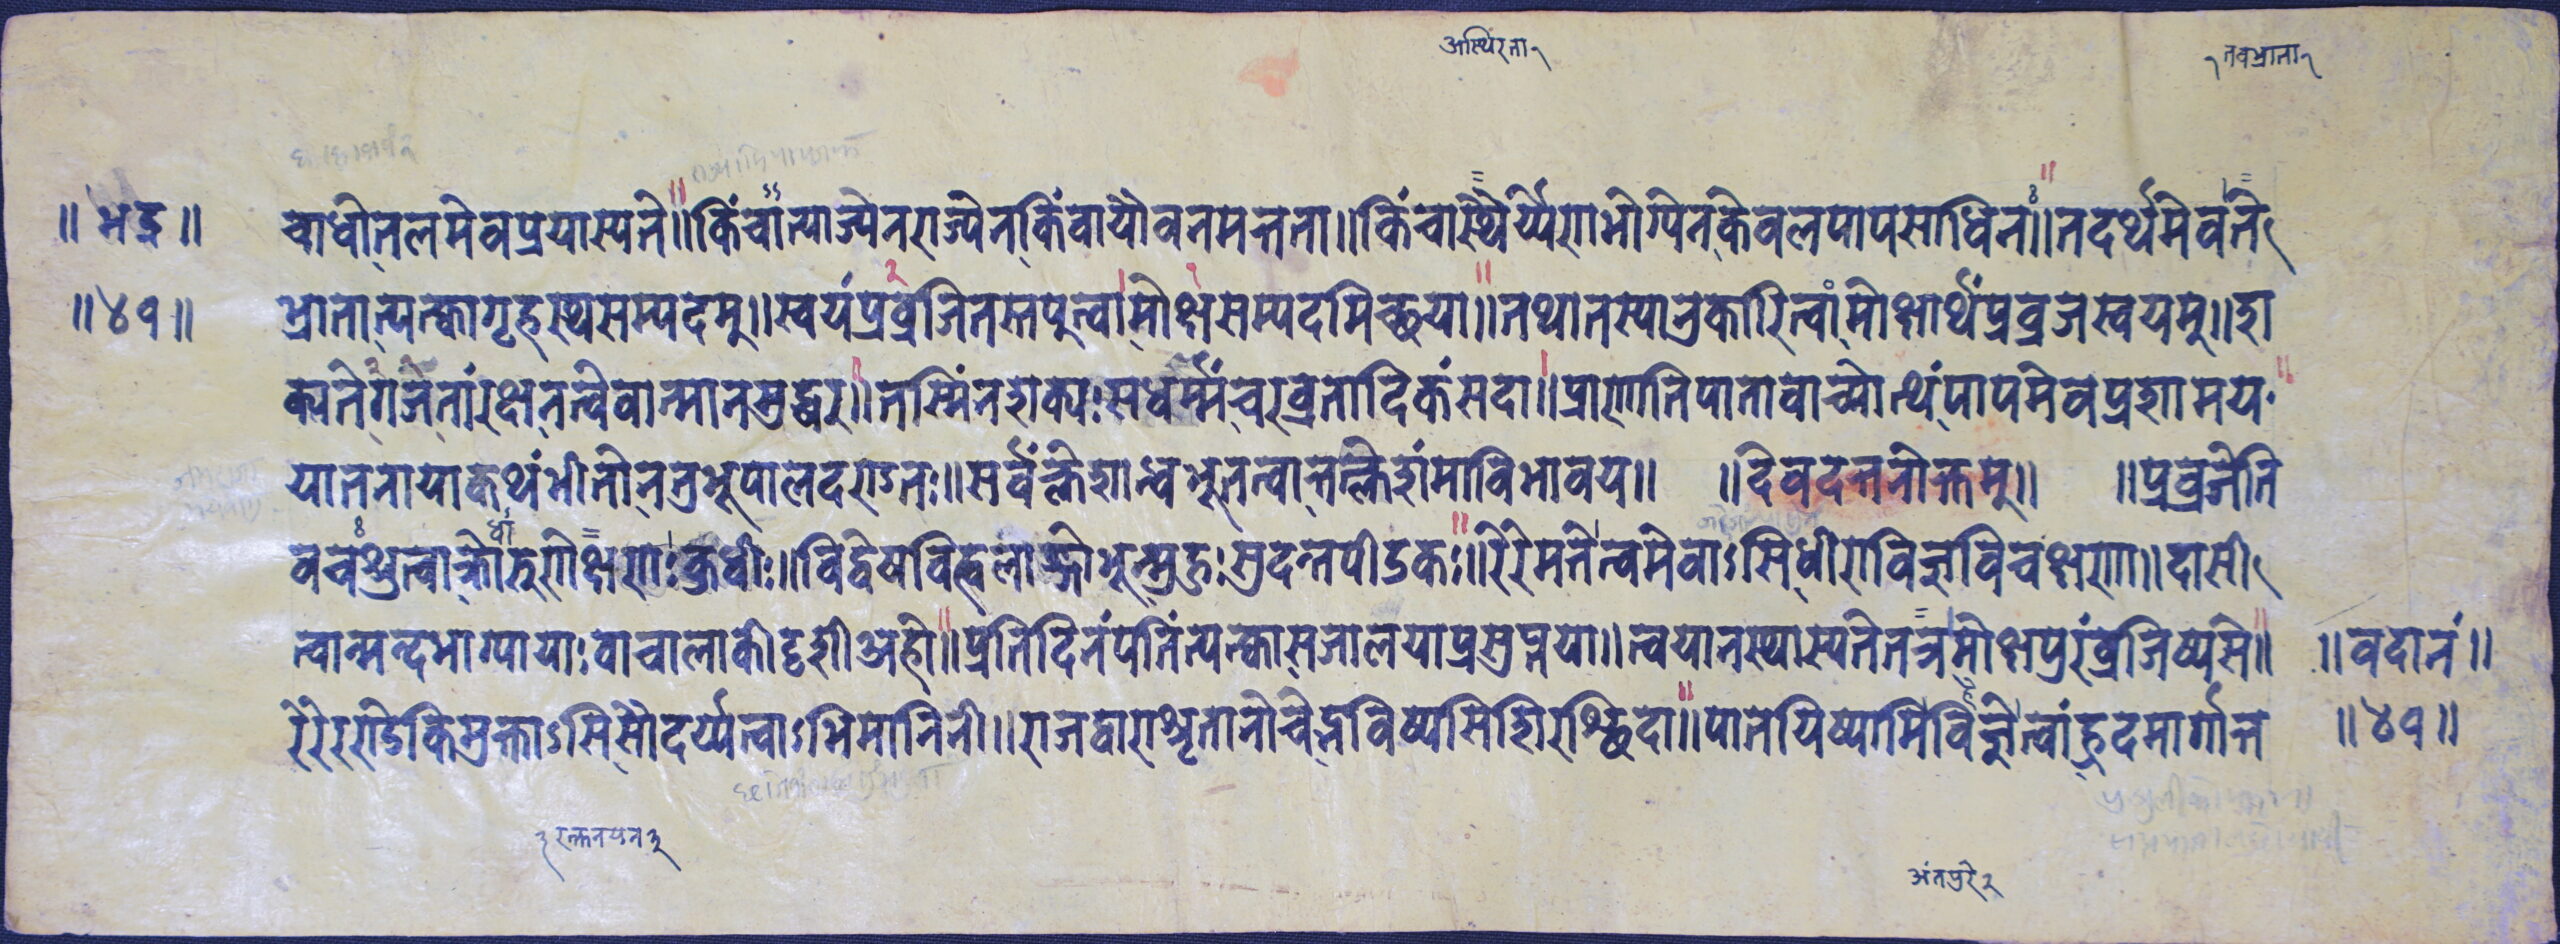 अस्थिरता १
१ तवभ्राता १
॥ भद्र ॥ चाधीनलमेवप्रयास्यते॥किंचान्याज्येनराज्येनकिंवायौवनमत्तता॥किंचास्थैर्य्येणभोग्येनकेवलपापसाधिनः॥तदर्थमेवते
॥४१॥ भ्रातात्यत्क्वागृहस्थसम्पदम्॥स्वयंप्रव्रजितस्तपुत्वामोक्षसम्पदमिच्छया॥तथातस्यानुकारित्वांमोक्षार्थंप्रव्रजस्वयम्॥शा
क्यतेगजेतांरक्षनत्वेवात्मानमुद्धर॥तस्मिंनशक्यःसधर्म्मंचरव्रतादिकंसदा॥प्राणातिपातावाच्योत्थंपापमेवप्रशामय
यातनायाकथंभीतोनतुभूपालदराग्नः॥सर्वंक्लेशान्धभूतत्वात्तत्क्लेशंमाविभावय॥ ॥देवदत्ततोक्तम्॥ ॥प्रव्रजेति
वचःश्रुत्वाक्रोधारुणेक्षणःकुधीः॥विद्वेषविह्वलाङ्गोभून्मुहुःमुदन्तपीडकः॥रेरेमतेत्वमेवाऽसिधीराविज्ञविचक्षणा॥दासी
त्वान्मन्दभाग्यायाःवाचालाकीदृशीअहो॥प्रतिदिनंपतिंत्यत्क्वासजालयाप्रसुप्तया॥त्वयातस्थास्यतेतत्रमोक्षपुरंव्रजिष्यसि॥ ॥वदानं॥
रेरेरराडेकिमुक्ताऽसिसौदर्य्यत्वाऽभिमानिनी॥राजद्वाराश्रृतानोचेद्भविष्यसिशिरश्छिदा॥पातयिष्यामिविज्ञेत्वांह्रदमार्गात्त ॥४१॥
३ रक्तनयन ३
अंतपुरे २